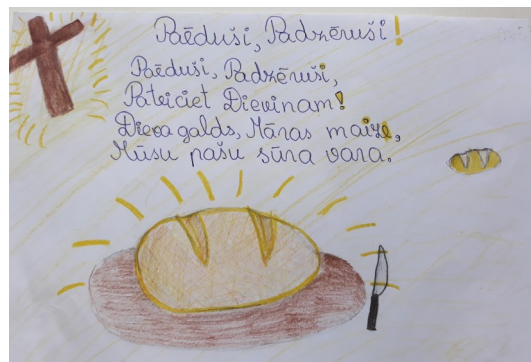 Paēduši, Padzēruši!
Paēduši, Padzēruši,
Pateiciet Dieviņam!
Dieva galds, Māras maize,
Mūsu pašu sūra vara.